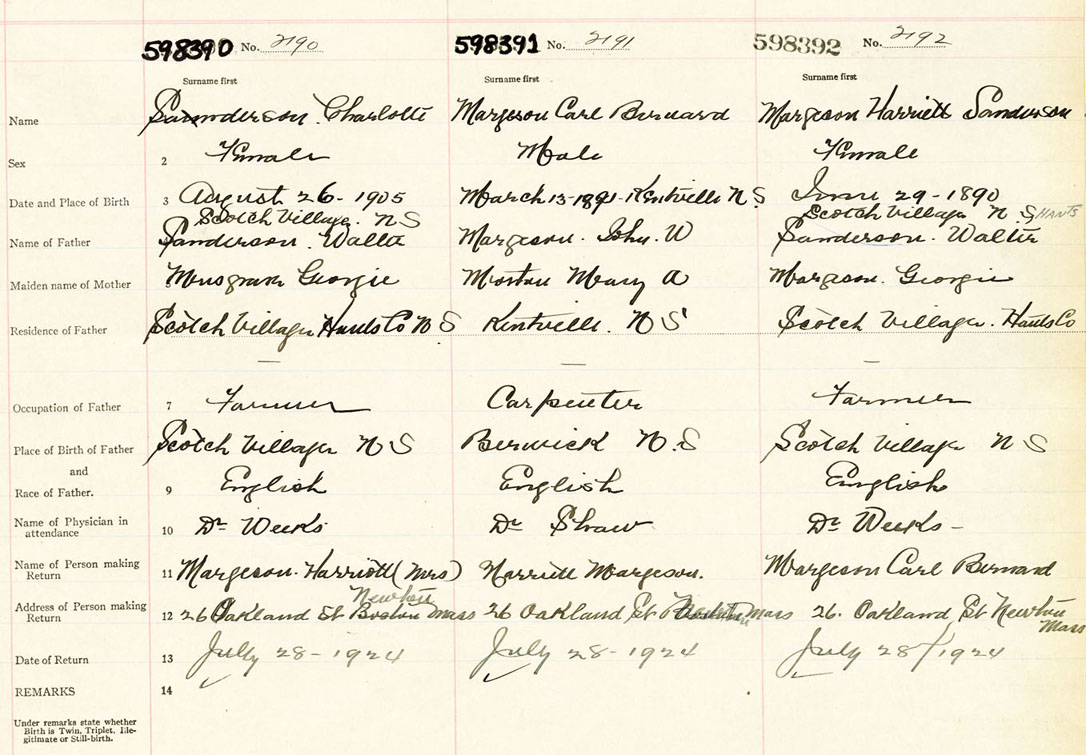 598390 No. 2190 598391 No. 2191 598392 No. 2192
Surname first Surname first Surname first
Name Sanderson Charlotte Margeson Carl Bernard Margeson Harriett Sanderson
Sex 2 Female Male Female
Date and Place of Birth 3 August 26 - 1905 March 13-1891-Kentville N.S June 29 - 1890
Scotch Village. N S Scotch Village N S HANTS
Name of Father Sanderson. Walter Margeson. John. W Sanderson. Walter
Maiden name of Mother Musgrave Georgie Morton Mary A Margeson. Georgie
Residence of Father Scotch Village Hants Co N S Kentville. N S Scotch Village. Hants Co
— — —
Occupation of Father 7 Farmer Carpenter Farmer
Place of Birth of Father Scotch Village N S Berwick N.S Scotch Village N S
and
Race of Father. 9 English English English
Name of Physician in
attendance 10 Dr Weeks Dr Shaw Dr Weeks –
Name of Person making
Return 11 Margeson. Harriett (Mrs) Harriett Margeson. Margeson Carl Bernard
Newton
Address of Person making
Return 12 26 Oakland St Boston Mass 26 Oakland St Mass 26. Oakland St Newton
Mass
Date of Return 13 July 28 - 1924 July 28 - 1924 July 28/1924
REMARKS 14
Under remarks state whether
Birth is Twin, Triplet, Ille-
gitimate or Still-birth.